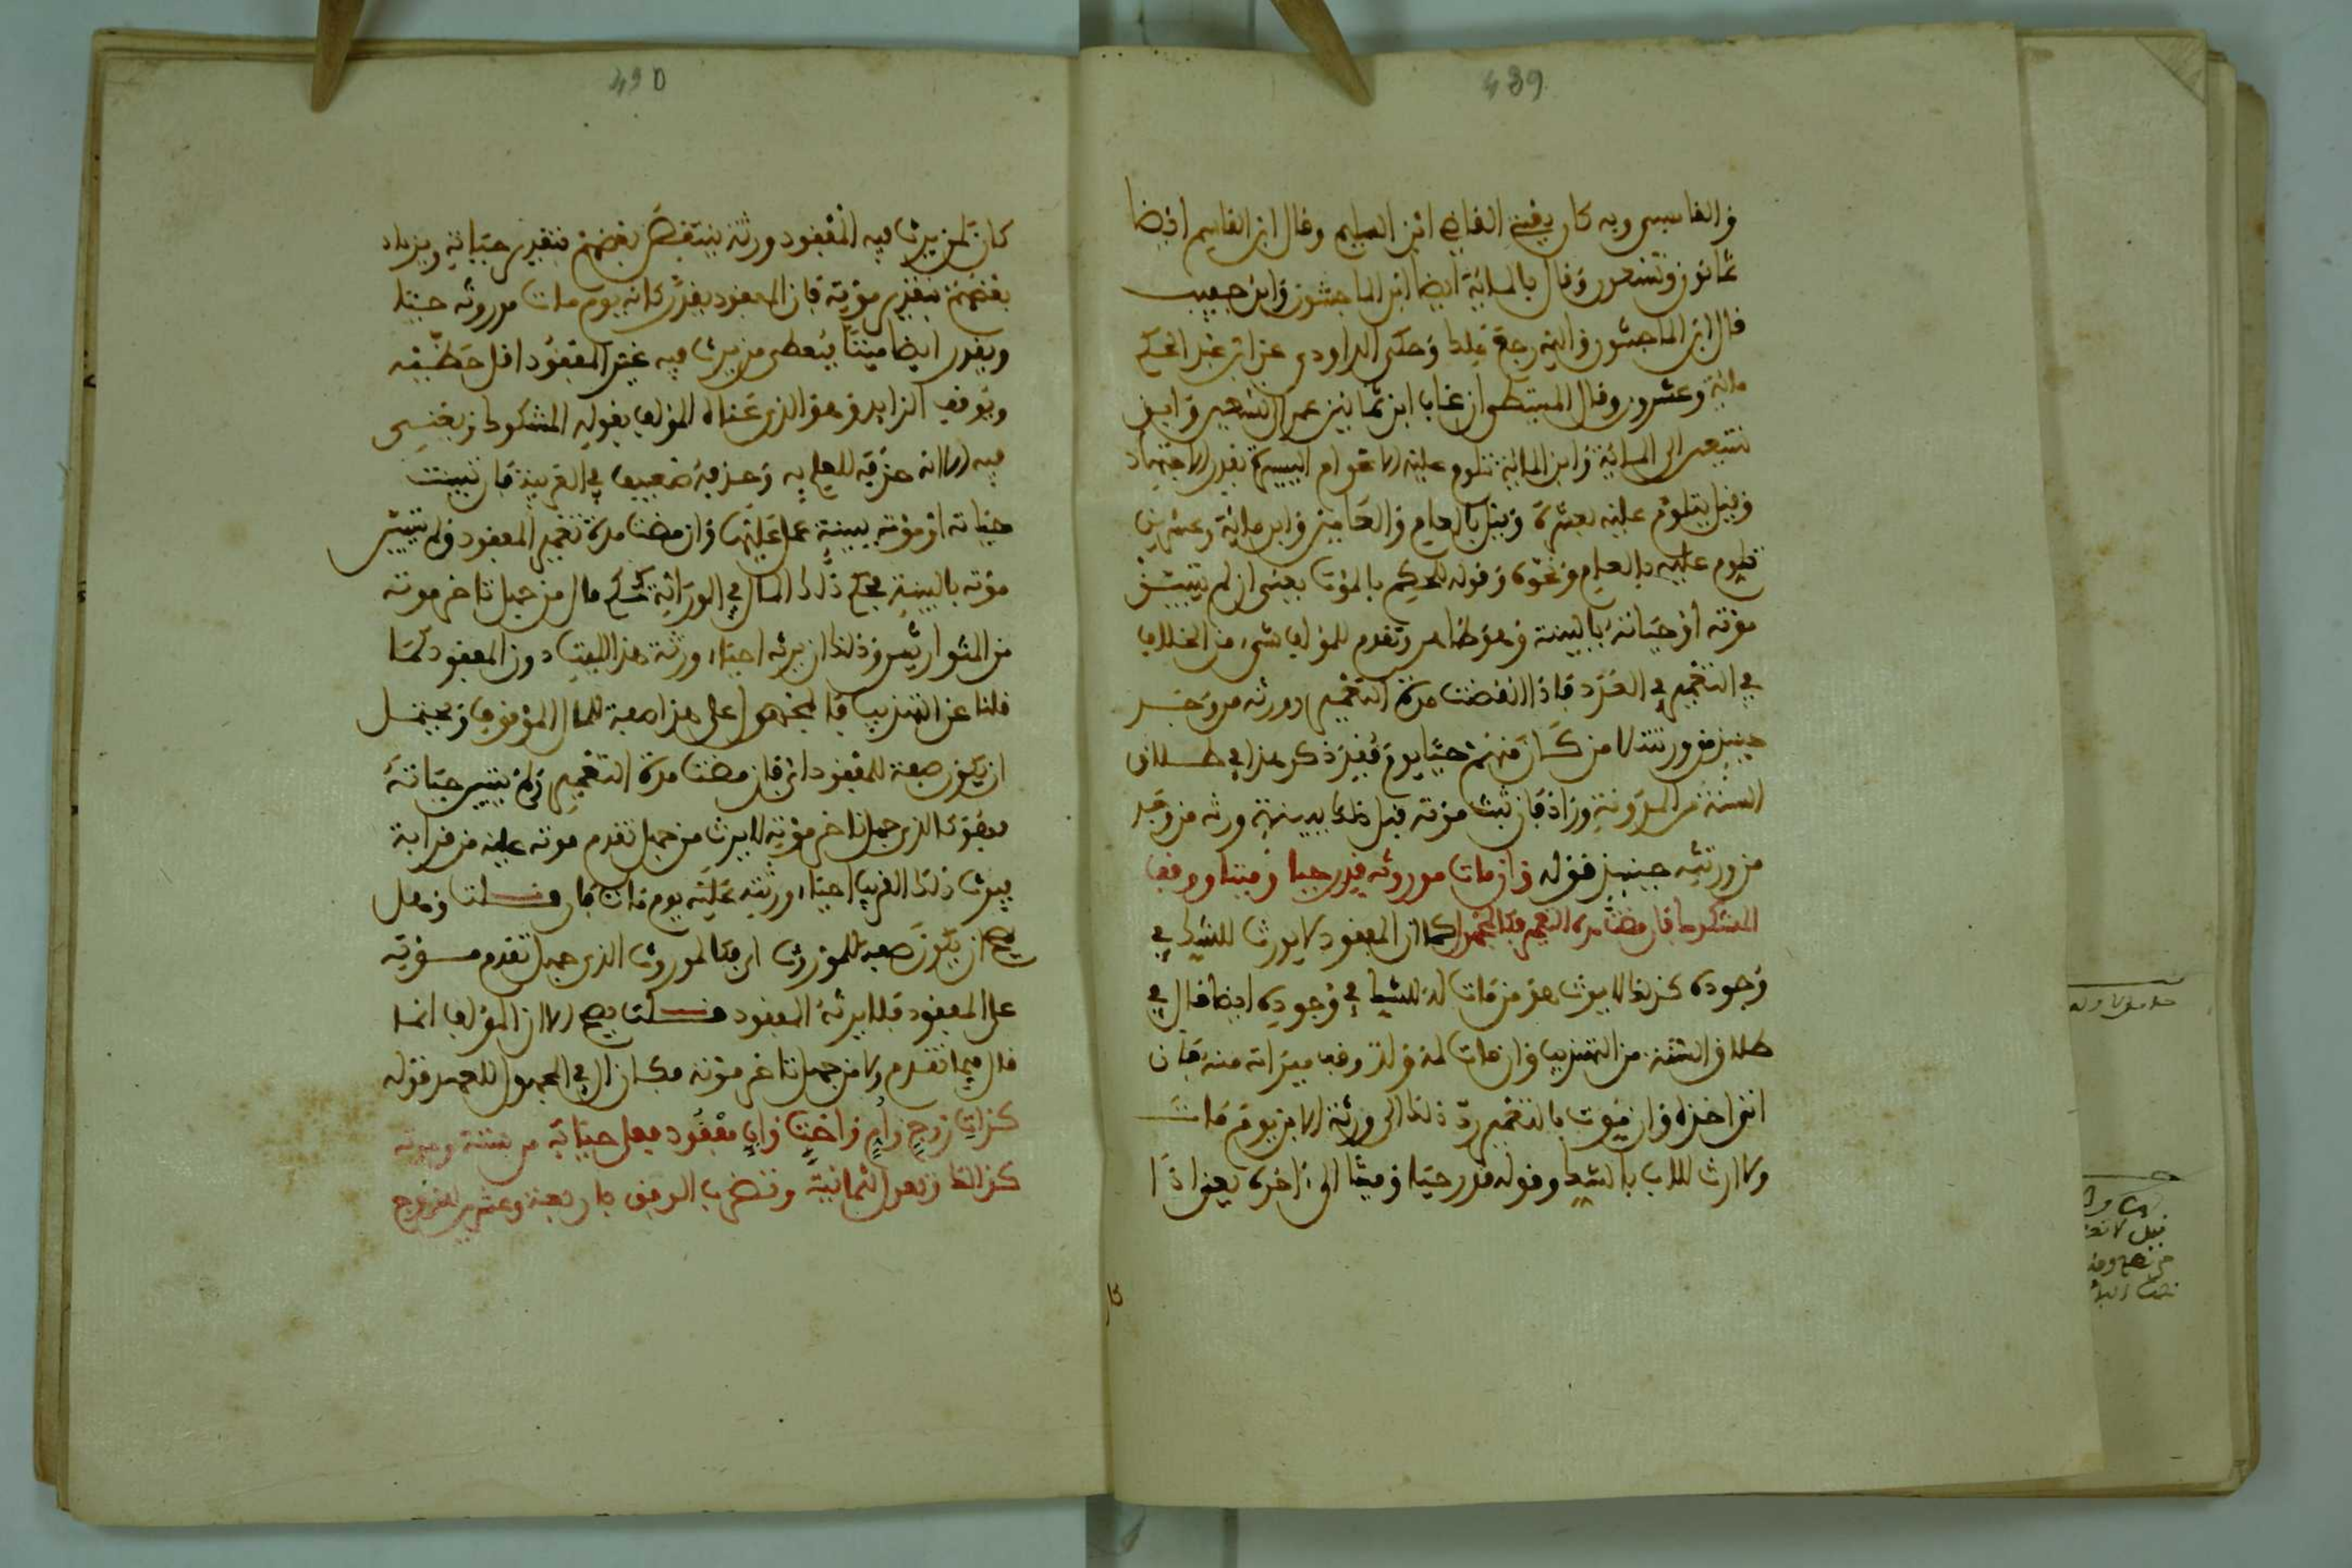 439
والقابسي وبه كان يقضي القاضي ابن السليم وقال ابن القاسم ايضا
ثمانون وتسعون وقال بالمائة ايضا ابن الماجشون وابن حبيب
قال ابن الماجشون واليه رجع وحكى الداودي عن ابن عبد الحكم
مائة وعشرون وقال المتيطي ان غاب ابن ثمانين عمر التسعين وابن
تسعين الى المائة وابن المائة تلوم عليه الاعوام اليسيرة بقدر الاجتهاد
وقيل يتلوم عليه بعشرة وقيل بالعام والعامين وابن مائة وعشرين
تلوم عليه بالعام ونحوه وقوله للحكم بالموت يعني ان لم تتبين
موته او حياته بالبينة وهو ظاهر وتقدم للمؤلف شيء من الخلاف
في التعمير في الفقد فاذا انقضت مدة التعمير ورثه من وجد
حينئذ من ورثته لا من كان منهم حيا يوم فقد ذكر هذا في طلاق
السنة من المدونة وزاد فان ثبت موته قبل ذلك ببينة ورثه من وجد
من ورثته حينئذ قوله وان مات موروثه قدر حيا وميتا ووقف
المشكوك فان مضت مدة التعمير فكالمجهول كما ان المفقود لا يورث للشك في
وجوده كذلك لا يرث هو من مات له للشك في وجوده ايضا قال في
طلاق السنة من التهذيب وان مات له ولد وقف ميراثه منه فان
اتى اخذه وان موت بالتعمير رد ذلك الى ورثة الابن يوم مات
ولا ارث للاب بالشك وقوله قدر حيا وميتا الى ءاخره يعني اذا
كا
430
كان لمن يرث فيه المفقود ورثة ينتقص بعضهم بتقدير حياته ويزداد
بعضهم بتقدير موته فان المفقود يقدر كانه يوم مات موروثه حيا
ويقدر ايضا ميتا فيعطى من يرث فيه غير المفقود اقل حظيه
ويوقف الزايد وهو الذي عناه المؤلف بقوله المشكوك
فيه الا انه حذفه للعلم به وحذفه ضعيف في العربية فان تبينت
حياته او موته ببينة عمل عليها وان مضت مدة تعمير المفقود ولم تتبين
موته بالبينة فحكم ذلك المال في الوراثة كحكم مال من جهل تاخر موته
من المتوارثين وذلك ان يرثه احياء ورثة هذا الميت دون المفقود كما
قلنا عن التهذيب فالمجهول على هذا صفة للمال الموقوف ويحتمل
ان يكون صفة للمفقود اي فان مضت مدة التعمير ولم تتبين حياته
فهو كالذي جهل تاخر موته لا يرث من جهل تقدم موته عليه من قرابة
فيرث ذلك القريب احياء ورثته عليه يوم مات فان قلت وهل
يصح ان يكون صفة للموروث اي فكالموروث الذي جهل تقدم موته
على المفقود فلا يرثه المفقود قلت يصح الا ان المؤلف انما
قال فيما تقدم ولا من جهل تاخر موته فكان ال في المجهول للعهد قوله
كذات زوج وام واخت واب مفقود فعلى حياته من ستة وموته
كذلك وتعول لثمانية وتضرب الوفق باربعة وعشرين للزوج